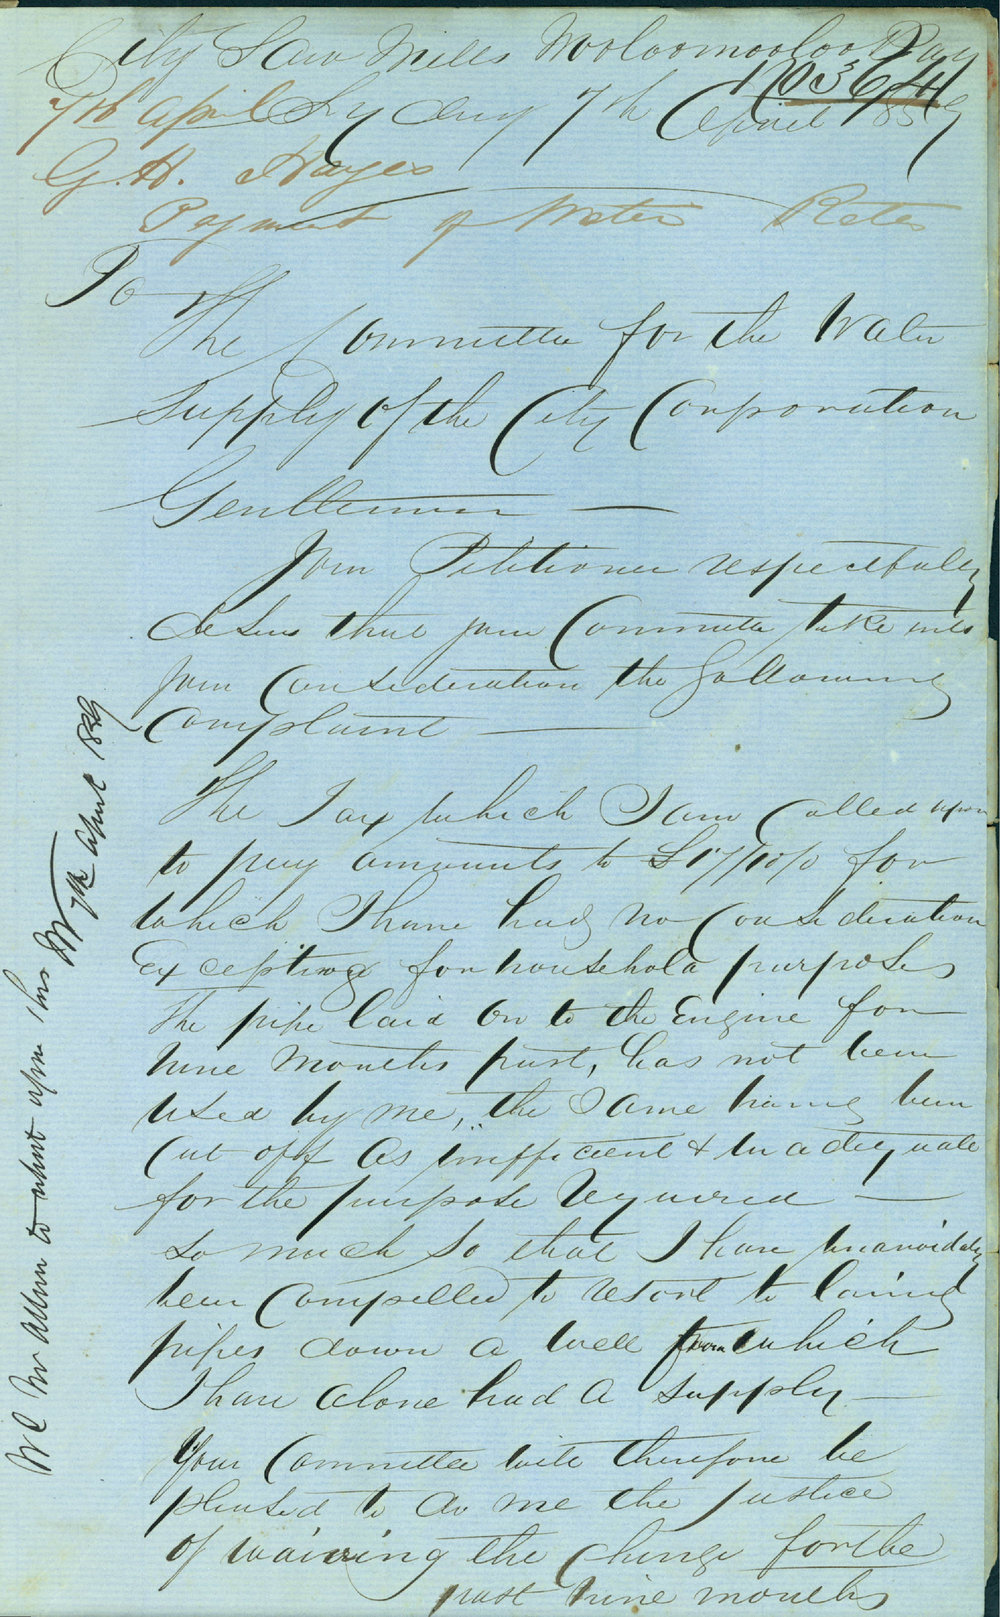 City Saw Mills Wooloomooloo Bay
No 364
Sydney 7th April 185
7th April
G. H. Hayes
Payment of Water Rates
To
The Committee for the Water
Supply of the City Corporation
Gentlemen —
Your Petitioner respectfuley
desires that your Committee take into
your Consideration the following
Complaint —
The Tax which I am Called upon
to pay amounts to £17/10/0 for
which I have had no Consideration
Excepting for household purposes
The pipe laid on to the Engine for
Nine Months past, has not been
used by me, the same having been
Cut off as inefficient & inadequate
for the purpose required —
So much so that I have unavoidably
been Compelled to resort to laing
pipes down a well from which
I have alone had a supply —
Your Committee will therefore be
pleased to do me the justice
of waiving the Charge for the
past nine months
7th April
upon this